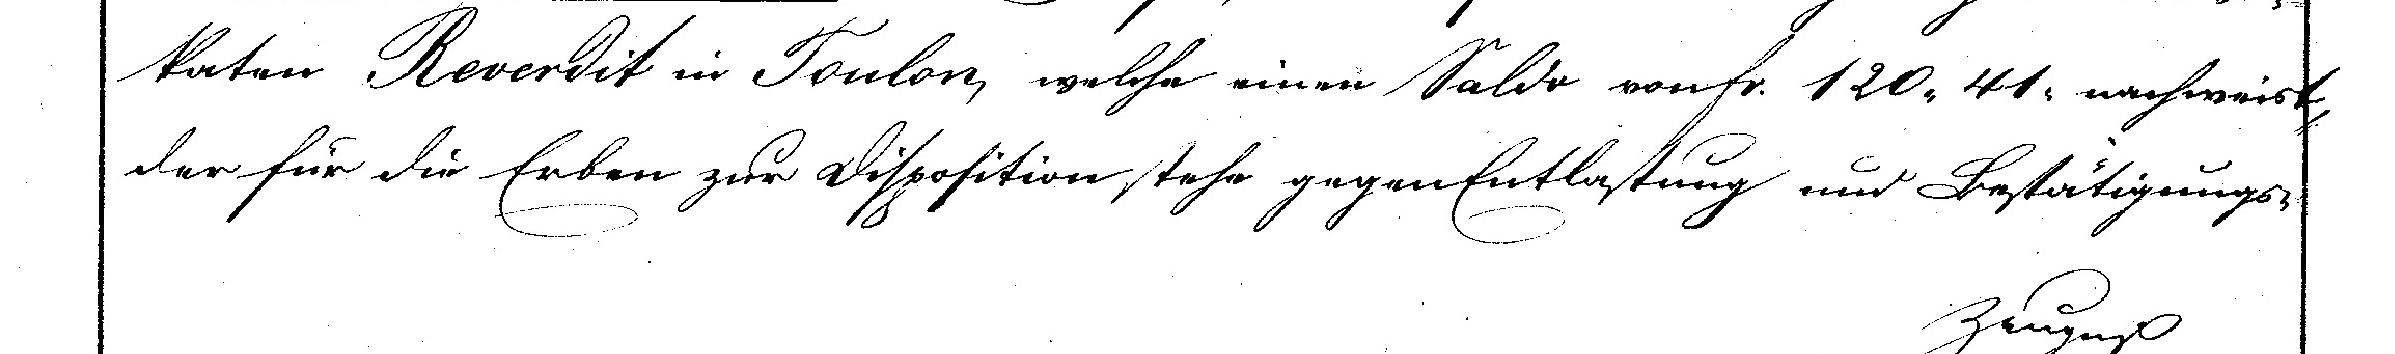 katen Reverdit in Toulon, welche einen Saldo von fr. 120„ 41„ nachweist,
der für die Erben zur Disposition stehe gegen Entlastung und Bestätigungs-
Zeugniß